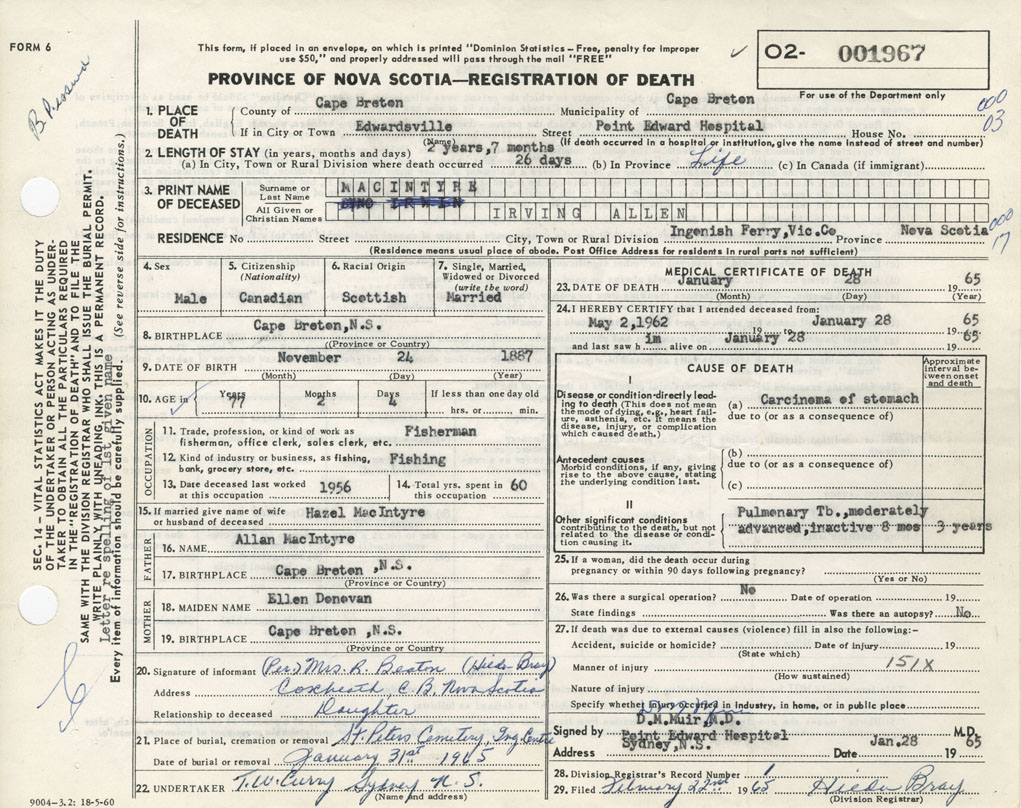 FORM 6
This form, if placed in an envelope, on which is printed "Dominion Statistics – Free, penalty for improper
use $50," and properly addressed will pass through the mail "FREE"
✓ O2- 001967
For use of the Department only
PROVINCE OF NOVA SCOTIA—REGISTRATION OF DEATH
1. PLACE OF DEATH
County of Cape Breton Municipality of Cape Breton
000
03
If in City or Town Edwardsville Street Point Edward Hospital House No.
(Name) (If death occurred in a hospital or institution, give the name instead of street and number)
2. LENGTH OF STAY (in years, months and days) 2 years,7 months
(a) In City, Town or Rural Division where death occurred 26 days (b) In Province Life (c) In Canada (if immigrant)
3. PRINT NAME OF DECEASED
Surname or Last Name MACINTYRE
All Given or Christian Names IRVING ALLEN
000
17
RESIDENCE No Street City, Town or Rural Division Ingenish Ferry,Vic.Co Province Nova Scotia
(Residence means usual place of abode. Post Office Address for residents in rural parts not sufficient)
4. Sex
Male
5. Citizenship
(Nationality)
Canadian
6. Racial Origin
Scottish
7. Single, Married, Widowed or Divorced
(write the word)
Married
8. BIRTHPLACE Cape Breton,N.S.
(Province or Country)
9. DATE OF BIRTH November 24 1887
(Month) (Day) (Year)
10. AGE in Years 77 Months 2 Days 4 If less than one day old
hrs. or min.
OCCUPATION
11. Trade, profession, or kind of work as Fisherman
fisherman, office clerk, sales clerk, etc.
12. Kind of industry or business, as fishing, Fishing
bank, grocery store, etc.
13. Date deceased last worked at this occupation 1956
14. Total yrs. spent in this occupation 60
15. If married give name of wife or husband of deceased Hazel MacIntyre
FATHER
16. NAME Allan MacIntyre
17. BIRTHPLACE Cape Breton ,N.S.
(Province or Country)
MOTHER
18. MAIDEN NAME Ellen Donovan
19. BIRTHPLACE Cape Breton ,N.S.
(Province or Country)
20. Signature of informant (Per) Mrs. R. Beaton (Hieda Bray)
Address Coxheath, C.B. Nova Scotia
Relationship to deceased Daughter
21. Place of burial, cremation or removal St. Peters Cemetery, Ing Centre
Date of burial or removal January 31st 1965
22. UNDERTAKER T.W. Curry Sydney N.S.
(Name and address)
9004-3.2: 18-5-60
MEDICAL CERTIFICATE OF DEATH
23. DATE OF DEATH January 28 19 65
(Month) (Day) (Year)
24. I HEREBY CERTIFY that I attended deceased from:
May 2,1962 19 to January 28 19 65
and last saw h im alive on January 28 19 65
CAUSE OF DEATH
Approximate interval between onset and death
I
Disease or condition directly leading to death (This does not mean the mode of dying, e.g., heart failure, asthenia, etc. It means the disease, injury, or complication which caused death.)
(a) Carcinoma of stomach
due to (or as a consequence of)
Antecedent causes
Morbid conditions, if any, giving rise to the above cause, stating the underlying condition last.
(b)
due to (or as a consequence of)
(c)
II
Other significant conditions contributing to the death, but not related to the disease or condition causing it.
Pulmonary Tb.,moderately
advanced,inactive 8 mos 3 years
25. If a woman, did the death occur during
pregnancy or within 90 days following pregnancy?
(Yes or No)
26. Was there a surgical operation? No Date of operation 19
State findings Was there an autopsy? No
27. If death was due to external causes (violence) fill in also the following:–
Accident, suicide or homicide? Date of injury 19
(State which)
Manner of injury 151X
(How sustained)
Nature of injury
Specify whether injury occurred in industry, in home, or in public place
D.M.Muir,M.D.
Signed by Point Edward Hospital M.D.
Address Sydney,N.S. Date Jan.28 19 65
28. Division Registrar's Record Number
29. Filed February 22nd 1965 Hieda Bray
(Division Registrar)
SEC. 14 – VITAL STATISTICS ACT MAKES IT THE DUTY
OF THE UNDERTAKER OR PERSON ACTING AS UNDER-
TAKER TO OBTAIN ALL THE PARTICULARS REQUIRED
IN THE "REGISTRATION OF DEATH" AND TO FILE THE
SAME WITH THE DIVISION REGISTRAR WHO SHALL ISSUE THE BURIAL PERMIT.
WRITE PLAINLY WITH UNFADING INK. THIS IS A PERMANENT RECORD.
Letter re spelling of 1st given name
Every item of information should be carefully supplied. (See reverse side for instructions.)